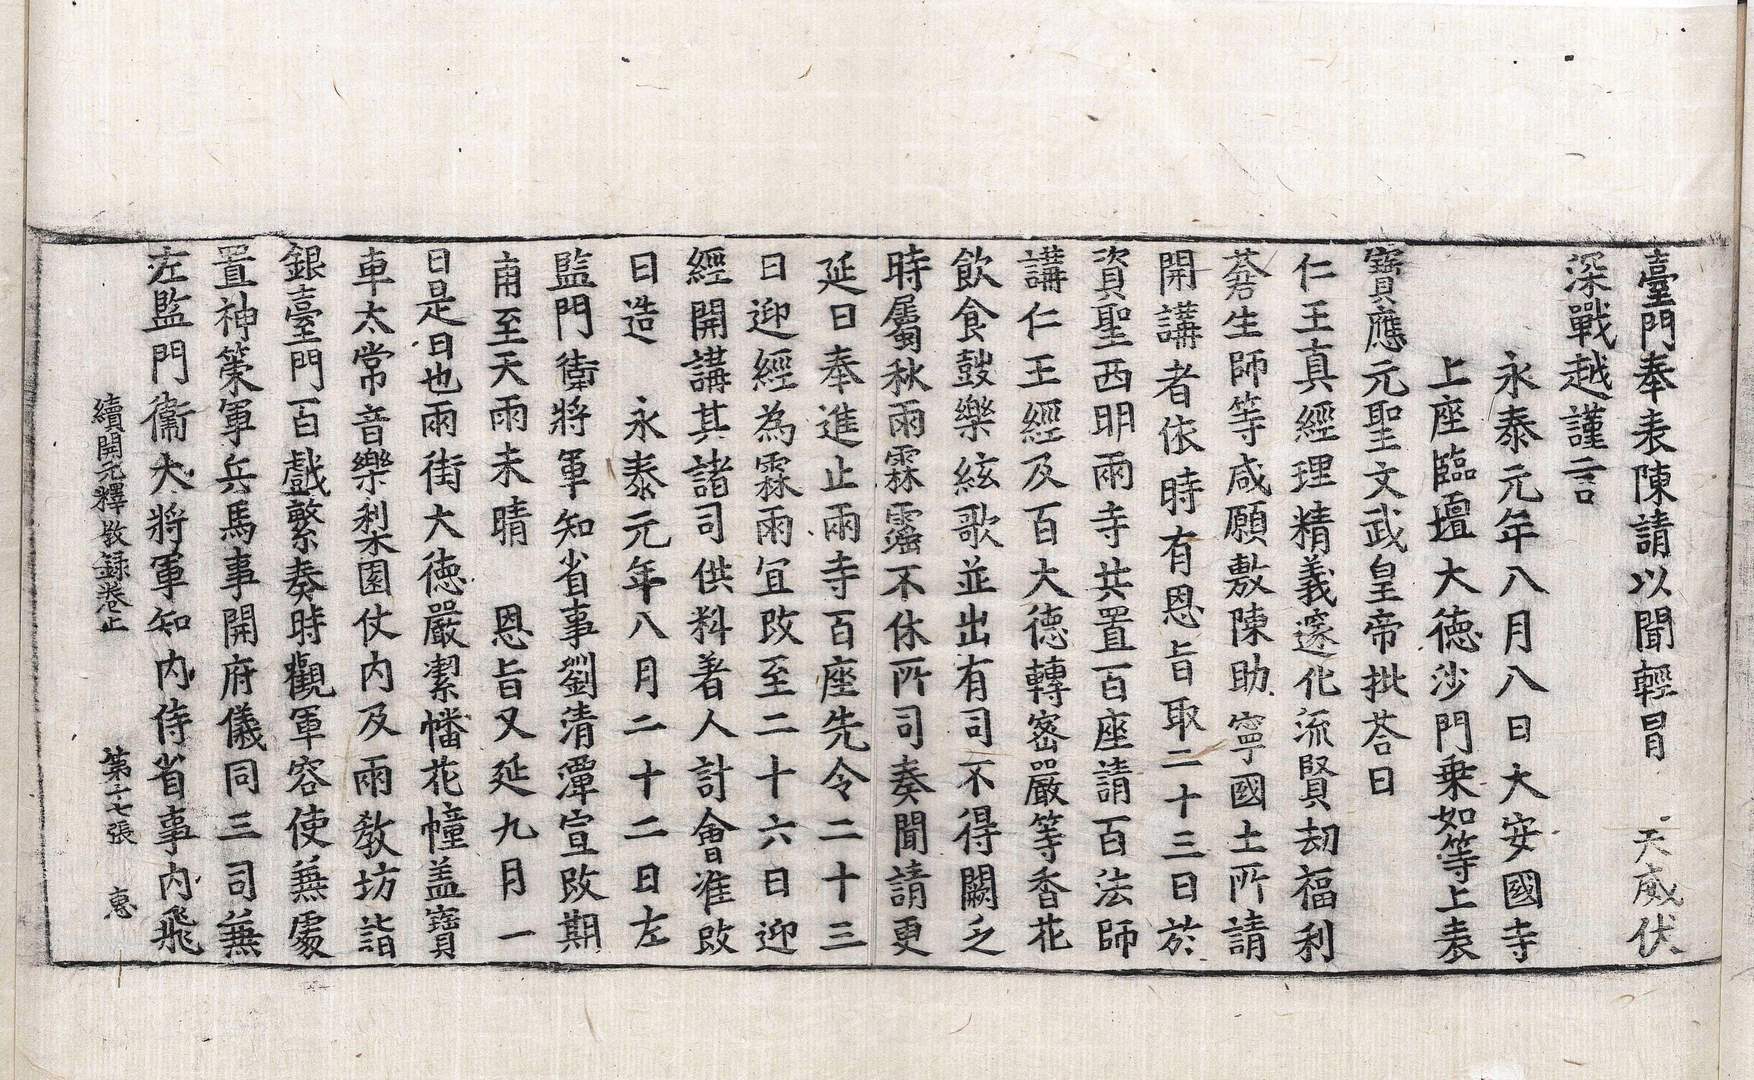 臺門奉表陳請以聞輕冒　天威伏
深戰越謹言
永泰元年八月八日大安國寺
上座臨壇大德沙門乗如等上表
寶應元聖文武皇帝批荅曰
仁王真經理精義邃化流賢劫福利
蒼生師等咸願敷陳助寧國土所請
開講者依時有恩旨取二十三日於
資聖西明兩寺共置百座請百法師
講仁王經及百大德轉密嚴等香花
飲食鼓樂絃歌並出有司不得闕乏
時屬秋雨霖霪不休所司奏聞請更
延日奉進止兩寺百座先令二十三
日迎經為霖雨宜改至二十六日迎
經開講其諸司供料著人計會准改
日造　永泰元年八月二十二日左
監門衛將軍知省事劉清潭宣改期
甭至天雨未晴　恩旨又延九月一
日是日也兩街大德嚴潔幡花幢盖寶
車太常音樂梨園仗內及兩教坊詣
銀臺門百戲繁奏時觀軍容使兼處
置神策軍兵馬事開府儀同三司兼
左監門衛大將軍知內侍省事內飛
續開元釋教録卷上　第二七張　惠